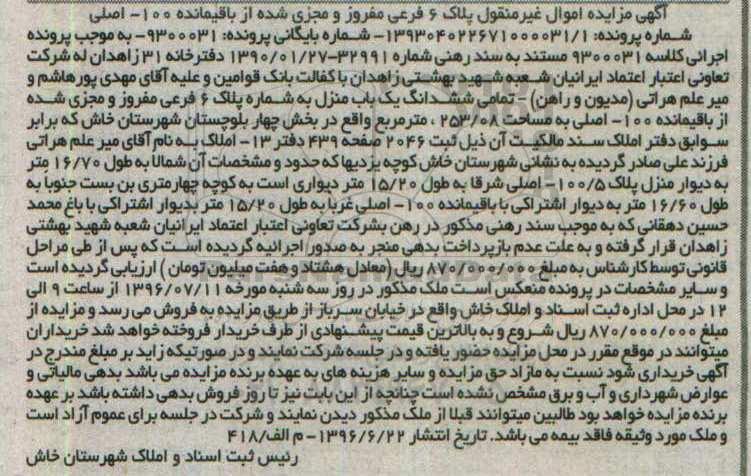 آگهی مزایده اموال غیرمنقول پلاک ۶ فرعی مفروز و مجزی شده از باقیمانده ۱۰۰- اصلی
شماره پرونده: ۱۳۹۳۰۴۰۲۲۶۷۱۰۰۰۰۳۱/۱- شماره بایگانی پرونده: ۹۳۰۰۰۳۱- به موجب پرونده
اجرائی کلاسه ۹۳۰۰۰۳۱ مستند به سند رهنی شماره ۳۲۹۹۱-۱۳۹۰/۰۱/۲۷ دفترخانه ۳۱ زاهدان له شرکت
تعاونی اعتبار اعتماد ایرانیان شعبه شهید بهشتی زاهدان با کفالت بانک قوامین و علیه آقای مهدی پورهاشم و
میر علم هراتی (مدیون و راهن)- تمامی ششدانگ یک باب منزل به شماره پلاک ۶ فرعی مفروز و مجزی شده
از باقیمانده ۱۰۰- اصلی به مساحت ۲۵۳/۰۸ ، مترمربع واقع در بخش چهار بلوچستان شهرستان خاش که برابر
سوابق دفتر املاک سند مالکیت آن ذیل ثبت ۲۰۴۶ صفحه ۴۳۹ دفتر ۱۳- املاک به نام آقای میر علم هراتی
فرزند علی صادر گردیده به نشانی شهرستان خاش کوچه یزدیها که حدود و مشخصات آن شمالا به طول ۱۶/۷۰ متر
به دیوار منزل پلاک ۱۰۰/۵- اصلی شرقا به طول ۱۵/۲۰ متر دیواری است به کوچه چهارمتری بن بست جنوبا به
طول ۱۶/۶۰ متر به دیوار اشتراکی با باقیمانده ۱۰۰- اصلی غربا به طول ۱۵/۲۰ متر بدیوار اشتراکی با باغ محمد
حسین دهقانی که به موجب سند رهنی مذکور در رهن بشرکت تعاونی اعتبار اعتماد ایرانیان شعبه شهید بهشتی
زاهدان قرار گرفته و به علت عدم بازپرداخت بدهی منجر به صدور اجرائیه گردیده است که پس از طی مراحل
قانونی توسط کارشناس به مبلغ ۸۷۰/۰۰۰/۰۰۰ ریال (معادل هشتاد و هفت میلیون تومان) ارزیابی گردیده است
و سایر مشخصات در پرونده منعکس است ملک مذکور در روز سه شنبه مورخه ۱۳۹۶/۰۷/۱۱ از ساعت ۹ الی
۱۲ در محل اداره ثبت اسناد و املاک خاش واقع در خیابان سرباز از طریق مزایده به فروش می رسد و مزایده از
مبلغ ۸۷۰/۰۰۰/۰۰۰ ریال شروع و به بالاترین قیمت پیشنهادی از طرف خریدار فروخته خواهد شد خریداران
میتوانند در موقع مقرر در محل مزایده حضور یافته و در جلسه شرکت نمایند و در صورتیکه زاید بر مبلغ مندرج در
آگهی خریداری شود نسبت به مازاد حق مزایده و سایر هزینه های به عهده برنده مزایده می باشد بدهی مالیاتی و
عوارض شهرداری و آب و برق مشخص نشده است چنانچه از این بابت نیز تا روز فروش بدهی داشته باشد بر عهده
برنده مزایده خواهد بود طالبین میتوانند قبلا از ملک مذکور دیدن نمایند و شرکت در جلسه برای عموم آزاد است
و ملک مورد وثیقه فاقد بیمه می باشد. تاریخ انتشار ۱۳۹۶/۶/۲۲- م الف/۴۱۸
رئیس ثبت اسناد و املاک شهرستان خاش